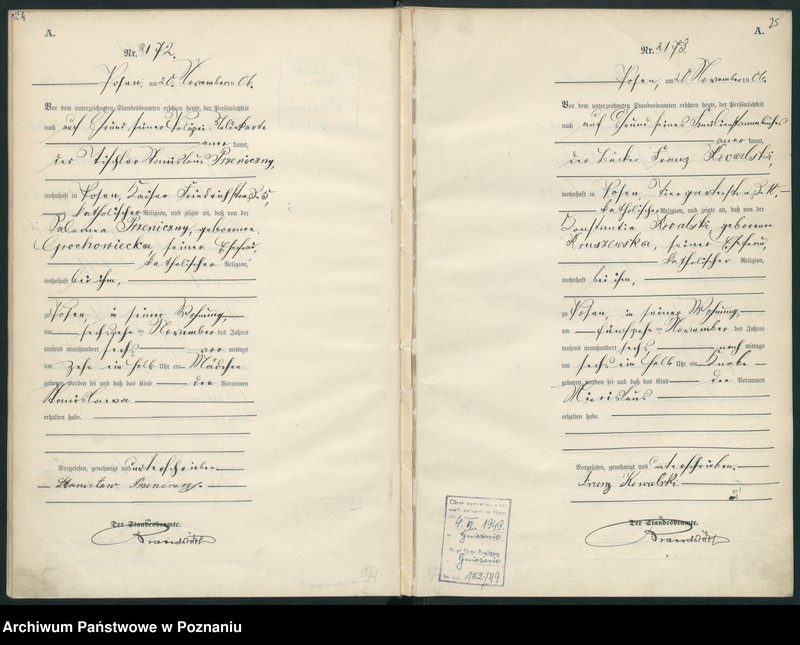 24
A.
Nr. 2172.
Posen, am 20. November 1906.
Vor dem unterzeichneten Standesbeamten erschien heute, der Persönlichkeit
nach auf Grund seiner Polizei Meldekarte
aner kannt,
der Tischler Stanislaus Pszeniczny,
wohnhaft in Posen, Kaiser Friedrichstraße 5,
katholischer Religion, und zeigte an, daß von der
Salomea Pszeniczny, geborenen
Grochowiecka, seiner Ehefrau,
katholischer Religion,
wohnhaft bei ihm,
zu Posen, in seiner Wohnung,
am sechszehnten November des Jahres
tausend neunhundert sechs vor mittags
um zehn ein halb Uhr ein Mädchen
geboren worden sei und daß das Kind den Vornamen
Stanislawa
erhalten habe.
Vorgelesen, genehmigt und unterschrieben.
Stanislaw Pszeniczny.
Der Standesbeamte.
Brandstätt
25
A.
Nr. 2173.
Posen, am 20. November 1906.
Vor dem unterzeichneten Standesbeamten erschien heute, der Persönlichkeit
nach auf Grund seines Familienstammbuches
aner kannt,
der Bäcker Franz Kowalski,
wohnhaft in Posen, Tiergartenstraße
katholischer Religion, und zeigte an, daß von der
Konstantia Kowalski, geborenen
Kruszewska, seiner Ehefrau,
katholischer Religion,
wohnhaft bei ihm,
zu Posen, in seiner Wohnung,
am fünfzehnten November des Jahres
tausend neunhundert sechs nach mittags
um sechs ein halb Uhr ein Knabe
geboren worden sei und daß das Kind den Vornamen
erhalten habe.
Vorgelesen, genehmigt und unterschrieben.
Franz Kowalski.
Der Standesbeamte.
Brandstätt
1949
Gnieźnie
122/49
Archiwum Państwowe w Poznaniu